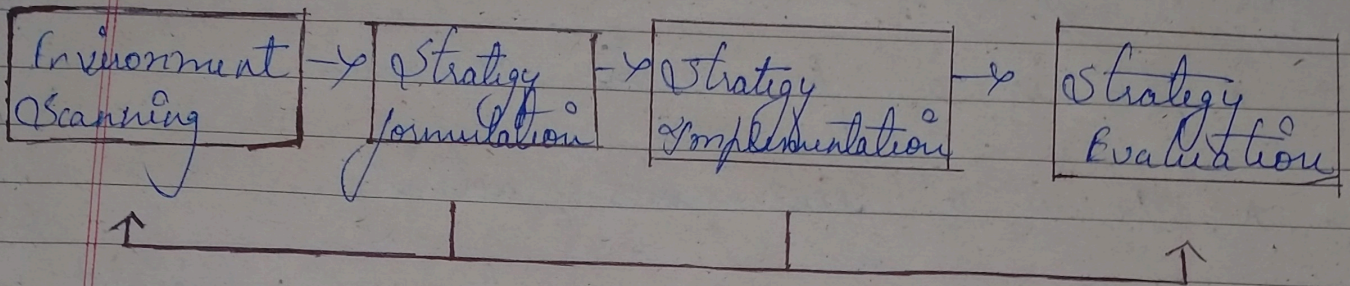 Environment
Scanning
Strategy
formulation
Strategy
Implementation
Strategy
Evaluation